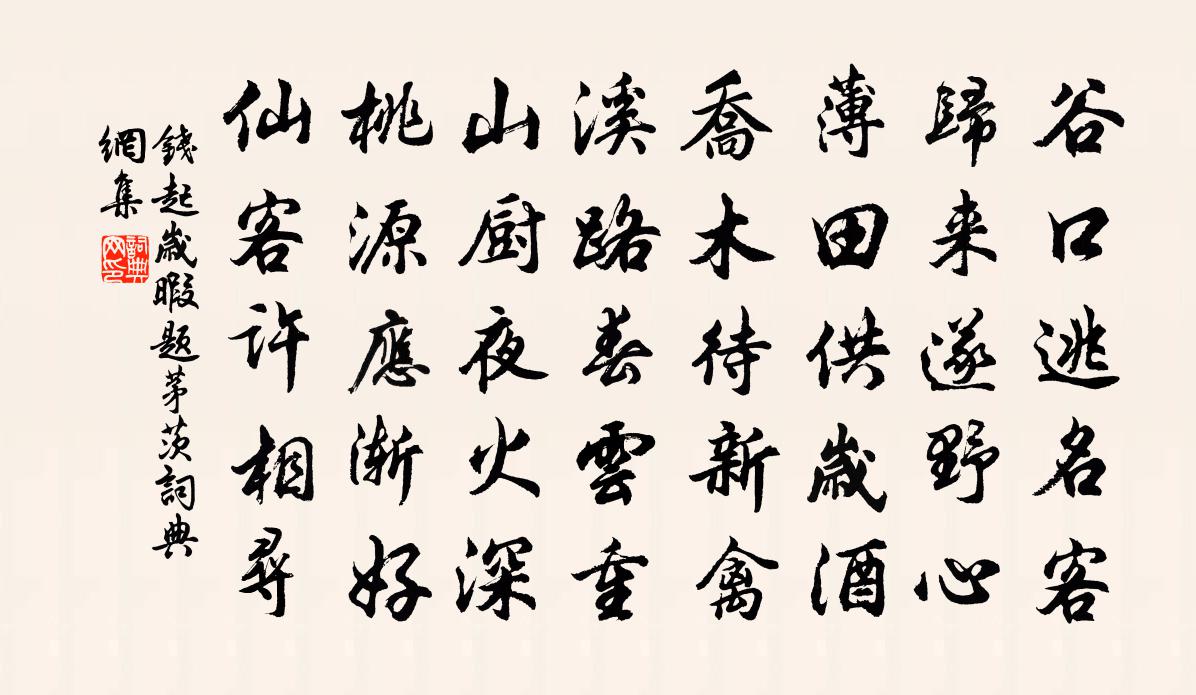 谷口逃名客
歸来遂野心
薄田供歲酒
喬木待新禽
溪路春雲重
山厨夜火深
桃源應漸好
仙客許相尋
錢起歲暇題茅茨詞典
網集
詞典
网印